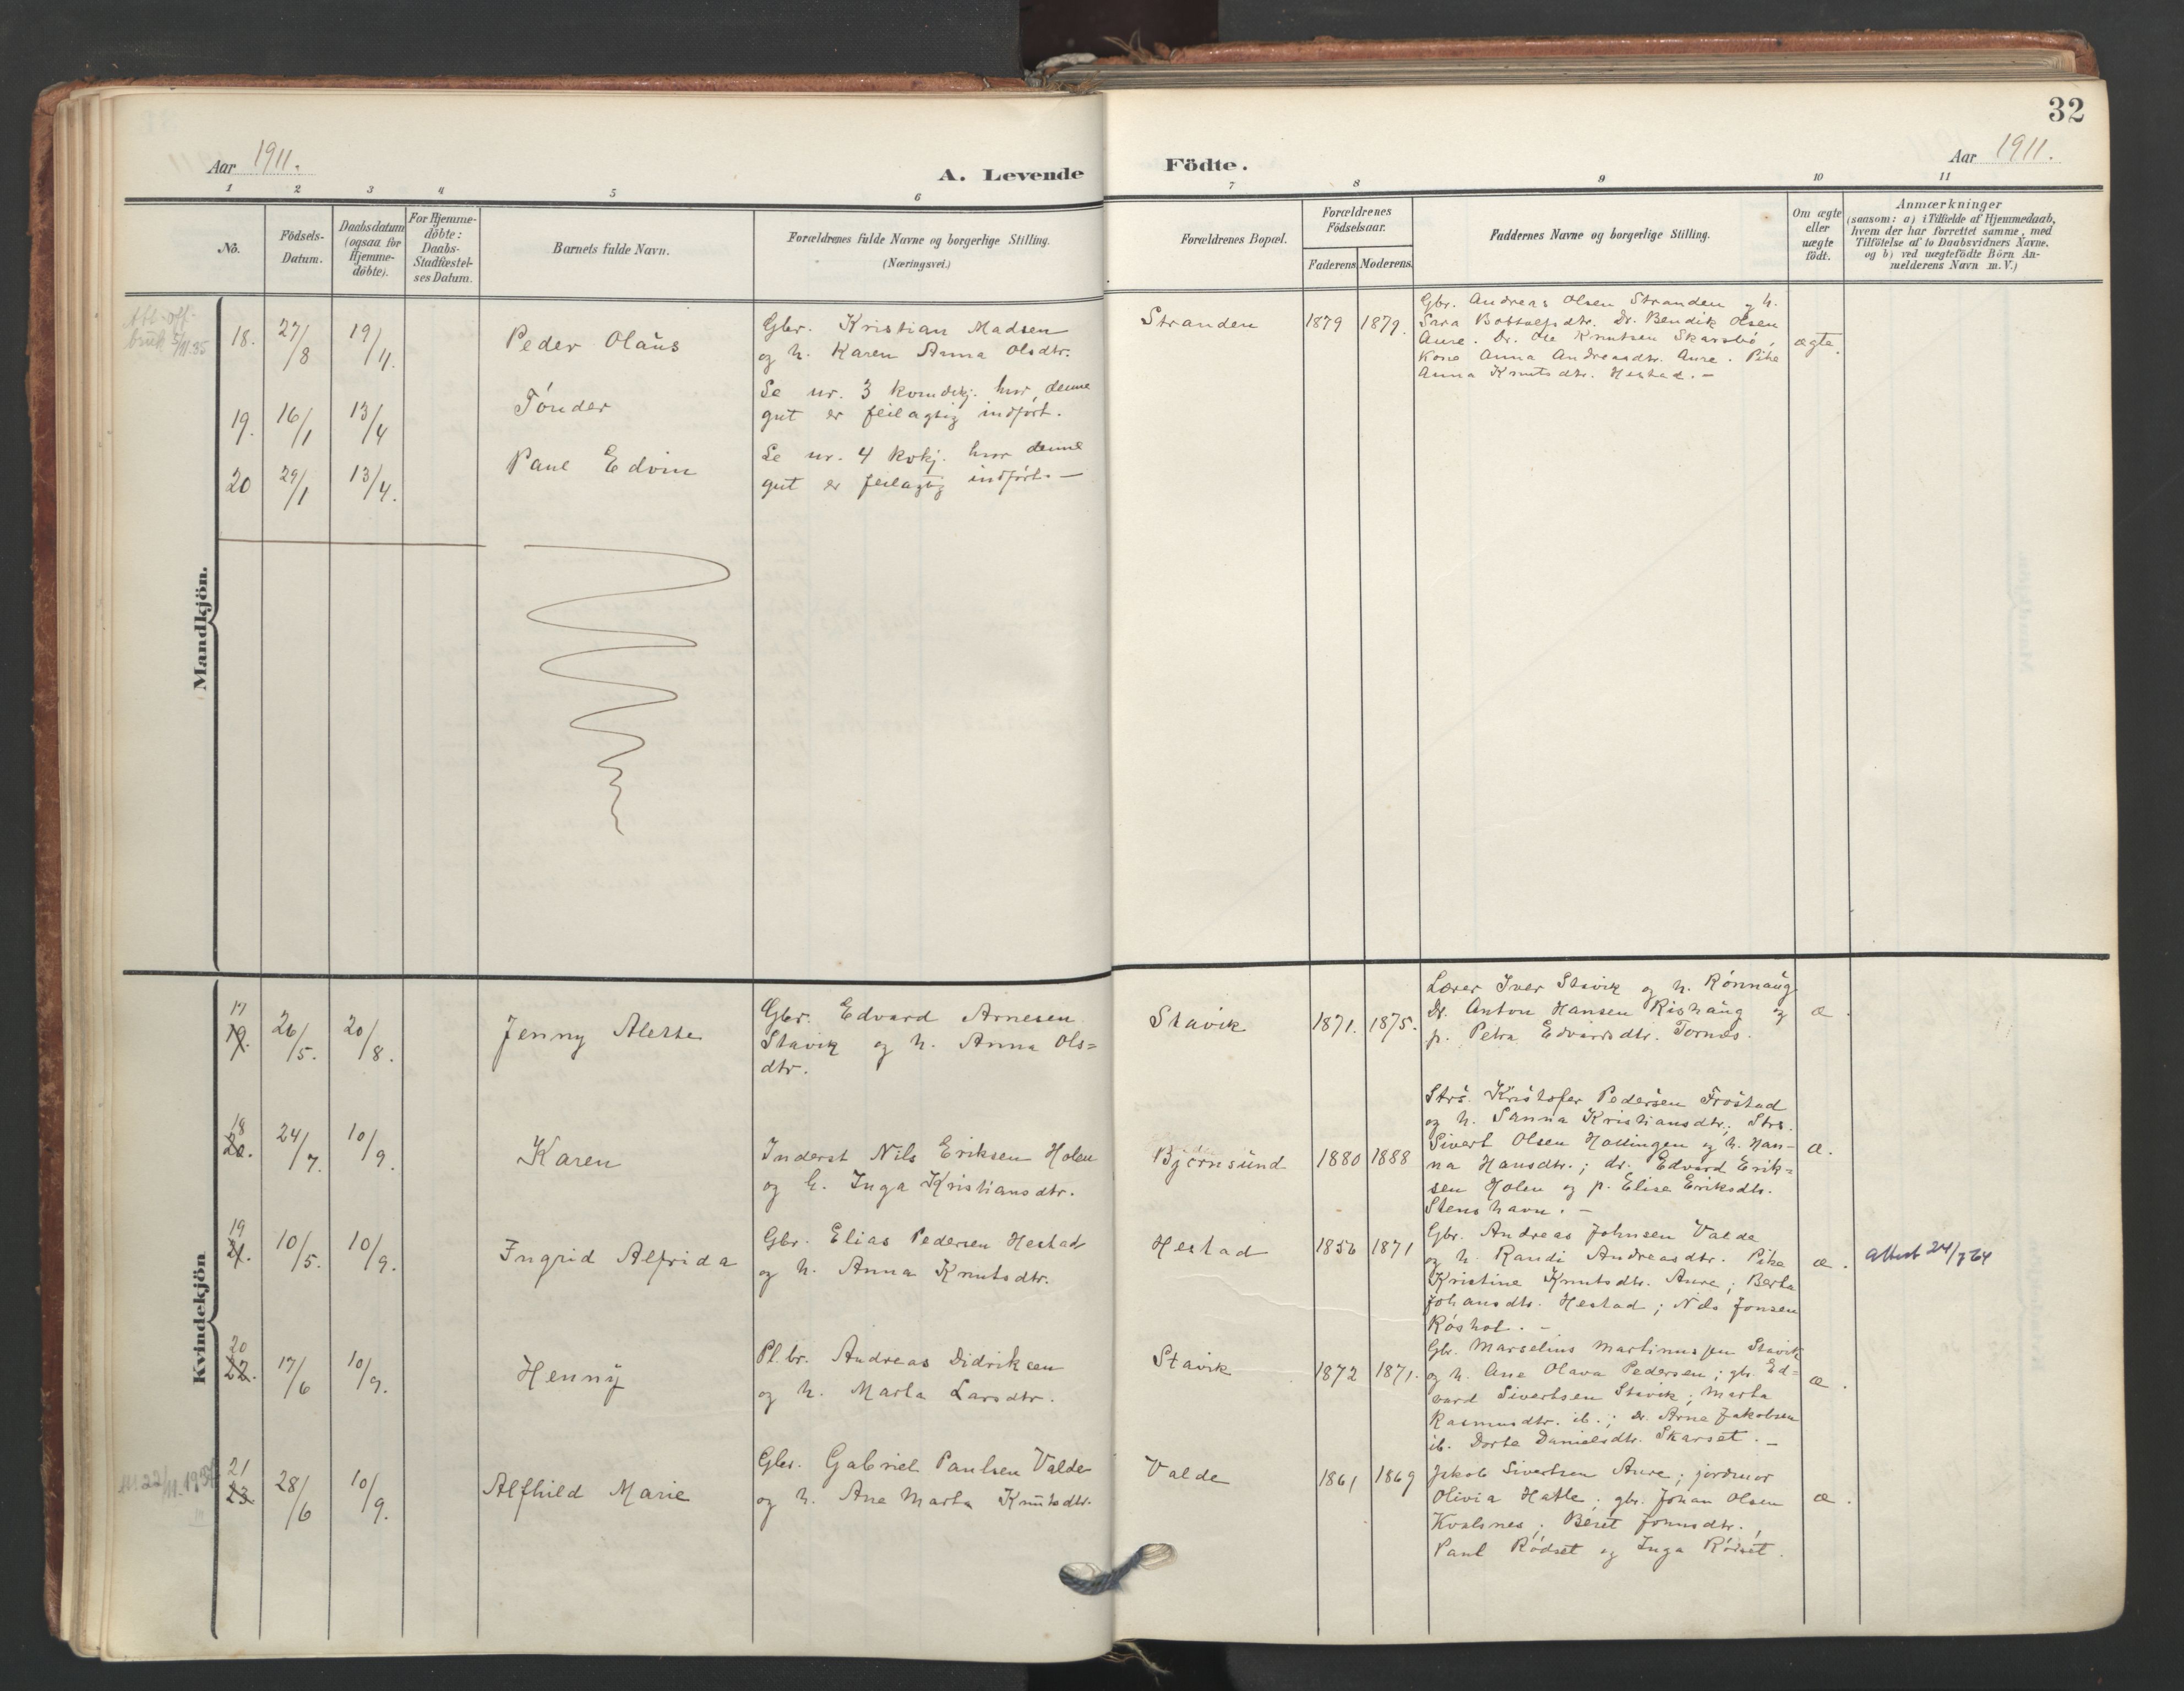 32
Aar 1911.
A. Levende Födte.
Aar 1911.
1 2 3 4 5 6 7 8 9 10 11
No.
Födsels-
Datum.
Daabsdatum
(ogsaa for
Hjemme-
döbte).
For Hjemme-
döbte:
Daabs-
Stadfæstel-
ses Datum.
Barnets fulde Navn.
Forældrenes fulde Navne og borgerlige Stilling.
(Næringsvei.)
Forældrenes Bopæl.
Forældrenes
Födselsaar.
Faderens Moderens.
Faddernes Navne og borgerlige Stilling.
Om ægte
eller
uægte
födt.
Anmærkninger
(saasom: a) i Tilfælde af Hjemmedaab,
hvem der har forrettet samme, med
Tilföielse af to Daabsvidners Navne.
og b) ved uægtefödte Börn An-
melderens Navn m. V.)
Mandkjön.
18. 27/8 19/11.
Peder Olaüs
Gbr. Kristian Madsen
og h. Karen Anna Olsdtr.
Stranden
1879 1879.
Gbr. Andreas Olsen Stranden og h.
Sara Bottolfsdtr. Dr. Bendik Olsen
Aure. Dr. Ole Knutsen Skarsbö,
Kone Anna Andreasdtr. Aure. Pike
Anna Knutsdtr. Hestad. –
ægte.
19. 16/1 13/4
Tönder
Se nr. 3 kvindekj. hvor denne
gut er feilagtig indført.
20 29/1 13/4.
Paul Edvin
Se nr. 4 kvkj. hvor denne
gut er feilagtig indført. –
Kvindekjön
17
19. 26/5. 20/8.
Jenny Alette
Gbr. Edvard Arnesen
Stavik og h. Anna Ols=
dtr.
Stavik
1871. 1875.
Lærer Iver Stavik og h. Rönnaug
Dr. Anton Hansen Rishaug og
p. Petra Edvardsdtr. Tornes.
æ.
18
20. 24/7. 10/9.
Karen
Inderst Nils Eriksen Holen
og h. Inga Kristiansdtr.
Björnsund
1880 1888
Strs. Kristofer Pedersen Frostad
og h. Sanna Kristiansdtr; Strs.
Sivert Olsen Hollingen og h. Han-
na Hansdtr.; dr. Edvard Erik=
sen Holen og p. Elise Eriksdtr.
Stenshavn. –
æ.
19
21. 10/5. 10/9.
Ingrid Alfrida
Gbr. Elias Pedersen Hestad
og h. Anna Knutsdtr.
Hestad
1856 1871
Gbr. Andreas Johnsen Valde
og h. Randi Andreasdtr. Pike
Kristine Knutsdtr. Aure; Berta
Johansdtr. Hestad; Nils Jonsen
Röshol. –
æ.
Attest 24/7 64
20
22. 17/6 10/9.
Henny
Pl.br. Andreas Didriksen
og h. Marta Larsdtr.
Stavik
1872 1871.
Gbr. Marselius Martinussen Stavik
og h. Ane Olava Pedersen; gbr. Ed=
vard Sivertsen Stavik; Marta
Rasmusdtr. ib.; dr. Arne Jakobsen
ib. Dorte Danielsdtr. Skarset. –
æ.
21
23 28/6 10/9.
Alfhild Marie
Gbr. Gabriel Paulsen Valde
og h. Ane Marta Knutsdtr.
Valde
1861 1869
Jakob Sivertsen Aure; jordmor
Olivia Hatle; gbr. Johan Olsen
Kvalsnes; Beret Jonnsdtr.,
Paul Rödset og Inga Rödset.
æ.